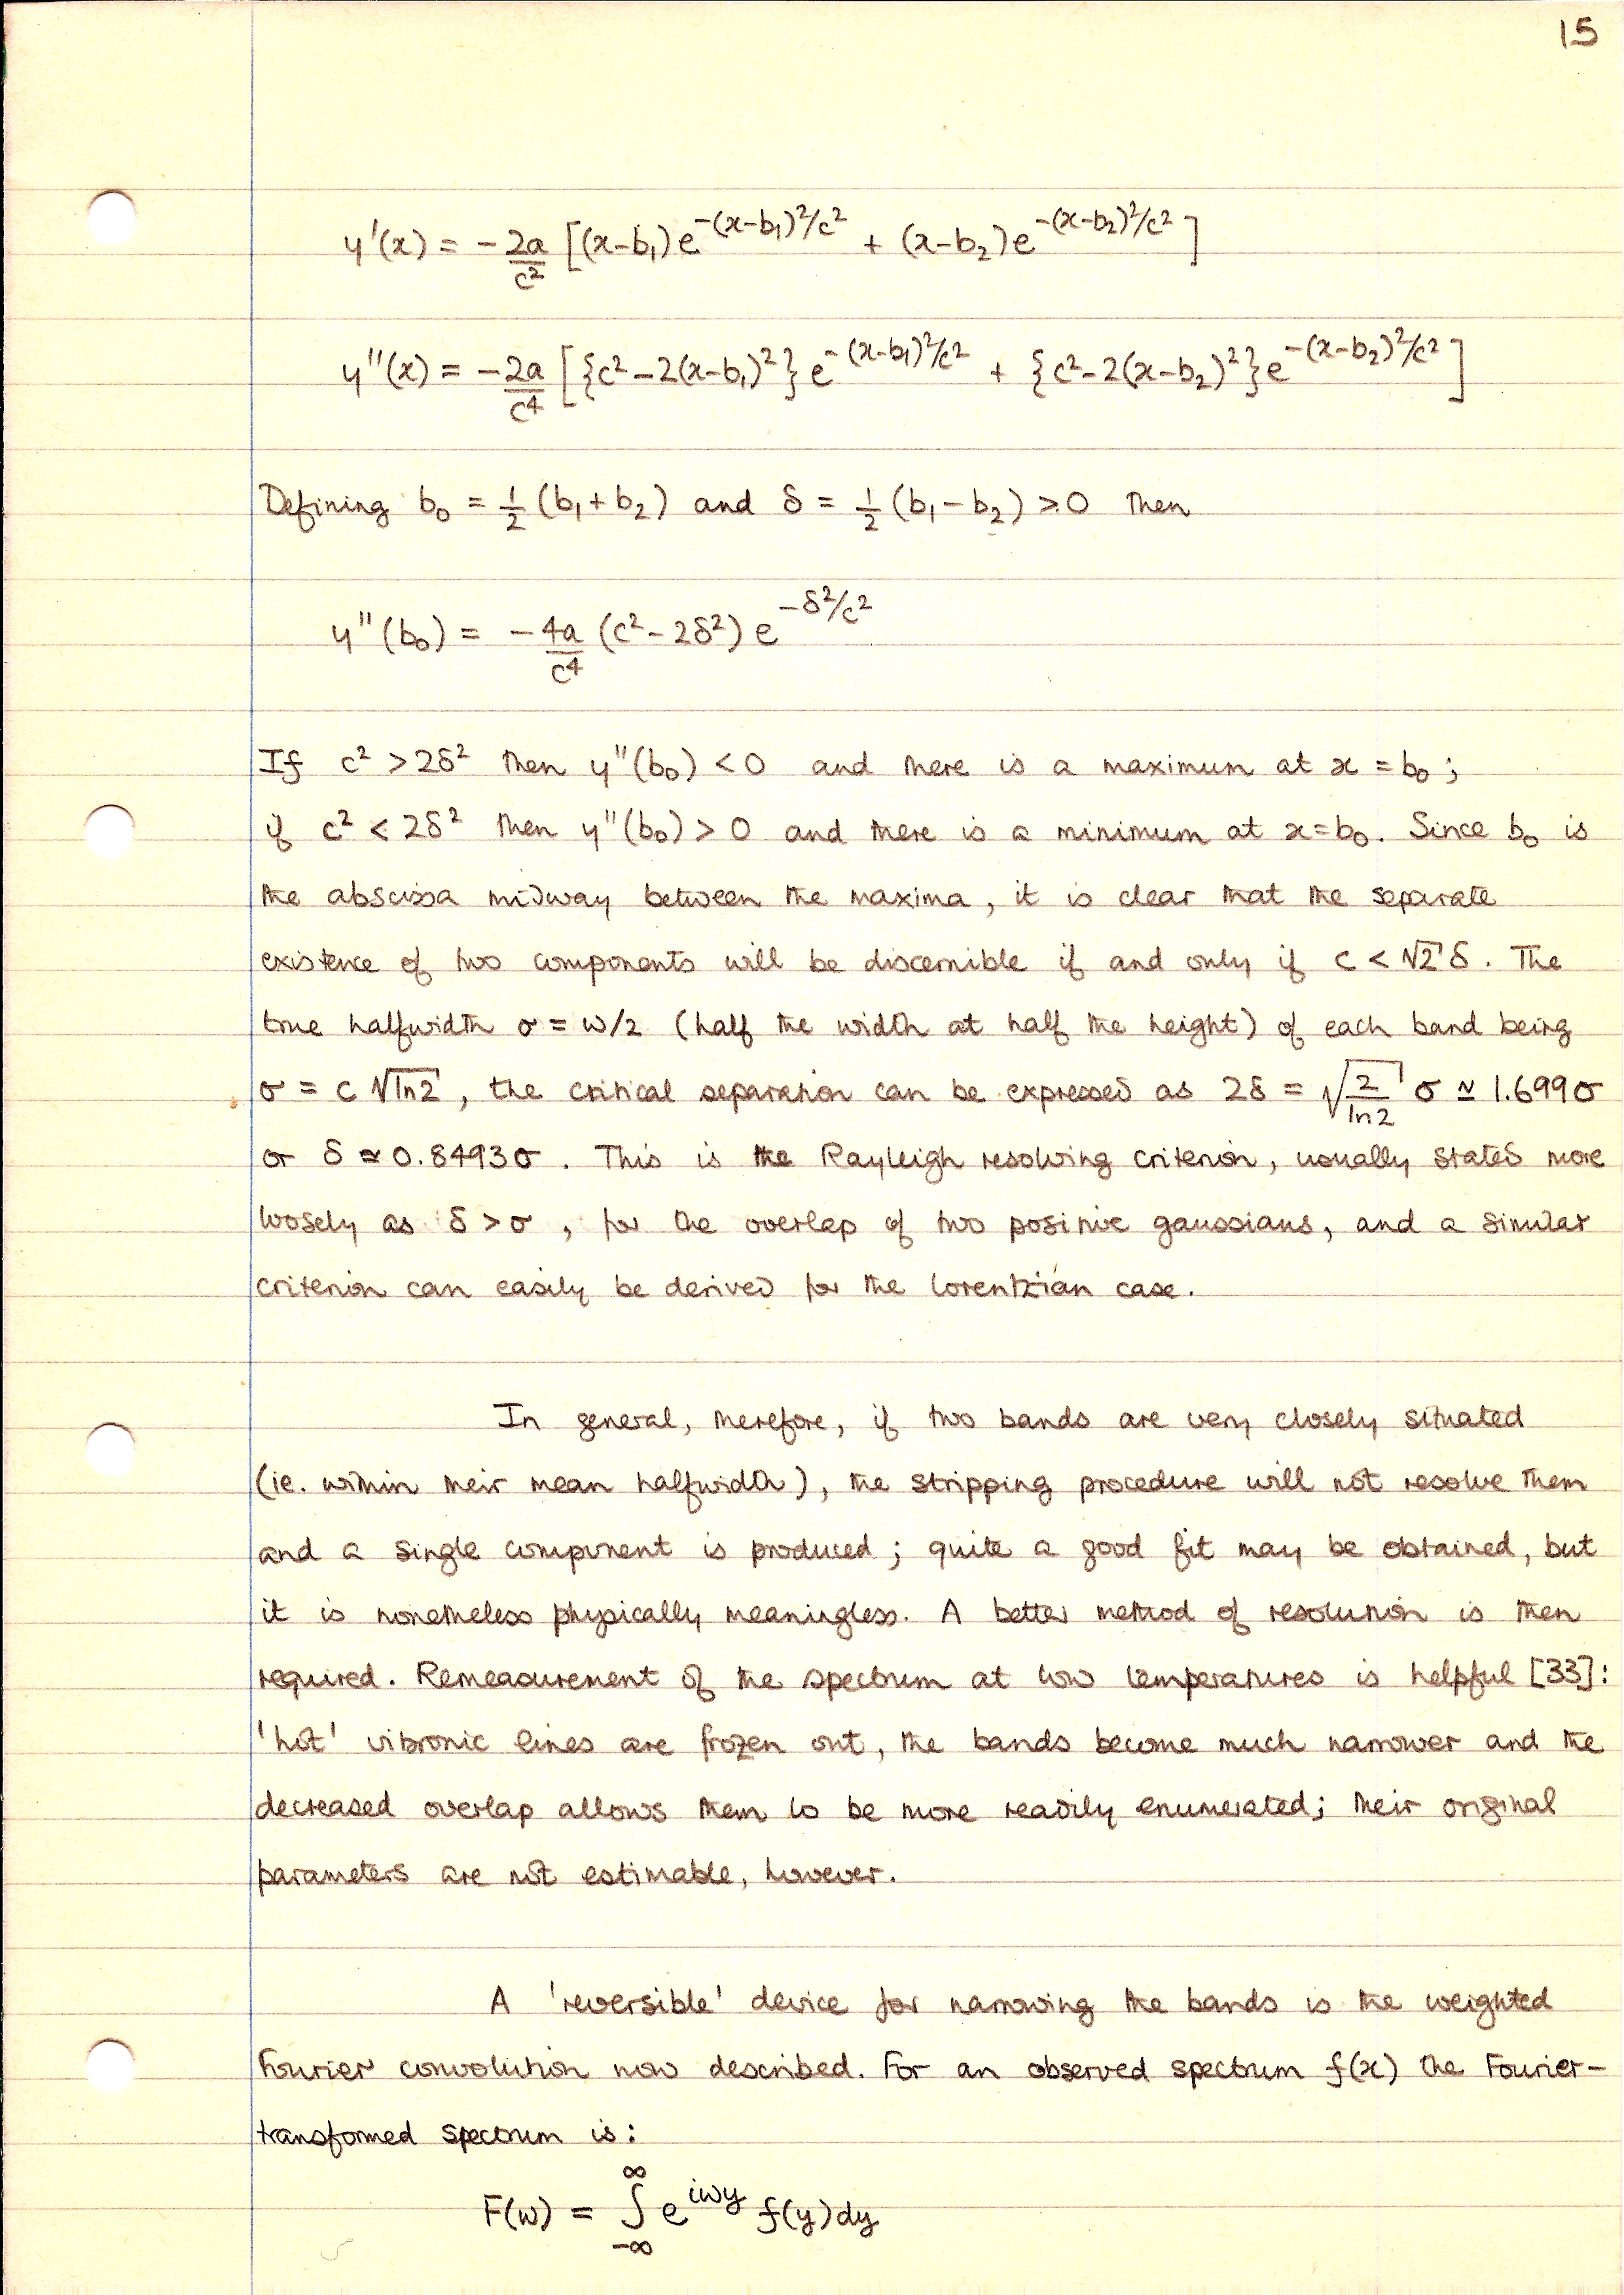 15
y'(x) = -2a/c² [(x-b₁)e^{-(x-b₁)²/c²} + (x-b₂)e^{-(x-b₂)²/c²}]
y''(x) = -2a/c⁴ [{c²-2(x-b₁)²}e^{-(x-b₁)²/c²} + {c²-2(x-b₂)²}e^{-(x-b₂)²/c²}]
Defining b₀ = ½(b₁+b₂) and δ = ½(b₁-b₂) ≥ 0 then
y''(b₀) = -4a/c⁴ (c²-2δ²) e^{-δ²/c²}
If c² > 2δ² then y''(b₀) < 0 and there is a maximum at x = b₀;
if c² < 2δ² then y''(b₀) > 0 and there is a minimum at x=b₀. Since b₀ is
the abscissa midway between the maxima, it is clear that the separate
existence of two components will be discernible if and only if c < √2 δ. The
true halfwidth σ = w/2 (half the width at half the height) of each band being
σ = c √ln2, the critical separation can be expressed as 2δ = √(2/ln2) σ ≃ 1.699σ
or δ ≃ 0.8493σ. This is the Rayleigh resolving criterion, usually stated more
loosely as δ > σ, for the overlap of two positive gaussians, and a similar
criterion can easily be derived for the lorentzian case.
In general, therefore, if two bands are very closely situated
(ie. within their mean halfwidth), the stripping procedure will not resolve them
and a single component is produced; quite a good fit may be obtained, but
it is nonetheless physically meaningless. A better method of resolution is then
required. Remeasurement of the spectrum at low temperatures is helpful [33]:
'hot' vibronic lines are frozen out, the bands become much narrower and the
decreased overlap allows them to be more readily enumerated; their original
parameters are not estimable, however.
A 'reversible' device for narrowing the bands is the weighted
Fourier convolution now described. For an observed spectrum f(x) the Fourier-
transformed spectrum is:
F(w) = ∫_{-∞}^{∞} e^{iwy} f(y)dy